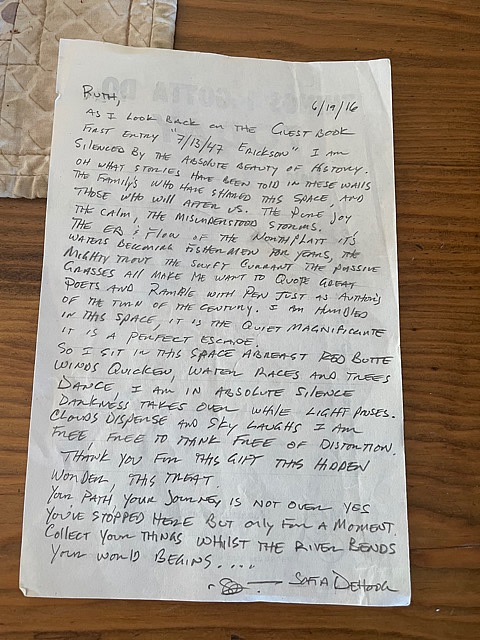 RUTH,
6/19/16
AS I LOOK BACK ON THE GUEST BOOK
FIRST ENTRY "7/13/47 ERICKSON" I AM
SILENCED BY THE ABSOLUTE BEAUTY OF HISTORY.
OH WHAT STORIES HAVE BEEN TOLD IN THESE WALLS
THE FAMILY'S WHO HAVE SHARED THIS SPACE, AND
THOSE WHO WILL AFTER US. THE PURE JOY
THE CALM, THE MISUNDERSTOOD STORMS.
THE EB & FLOW OF THE NORTH PLATT IT'S
WATERS BECOMING FISHERMEN FOR YEARS, THE
MIGHTY TROUT THE CURRANT THE PASSIVE
GRASSES ALL MAKE ME WANT TO QUOTE GREAT
POETS AND RAMBLE WITH PEN JUST AS AUTHORS
OF THE TURN OF THE CENTURY. I AM HUMBLED
IN THIS SPACE, IT IS THE QUIET MAGNIFICANTE
IT IS A PERFECT ESCAPE.
SO I SIT IN THIS SPACE ABREAST RED BUTTE
WINDS QUICKEN, WATER RACES AND TREES
DANCE, I AM IN ABSOLUTE SILENCE
DARKNESS TAKES OVER WHILE LIGHT POSES.
CLOUDS DISPENSE AND SKY LAUGHS I AM
FREE FREE TO THINK FREE OF DISTORTION.
THANK YOU FOR THIS GIFT THIS HIDDEN
WONDER, THIS TREAT.
YOUR PATH, YOUR JOURNEY IS NOT OVER YES
YOU'VE STOPPED HERE BUT ONLY FOR A MOMENT.
COLLECT YOUR THINGS WHILST THE RIVER BENDS
YOUR WORLD BEGINS....